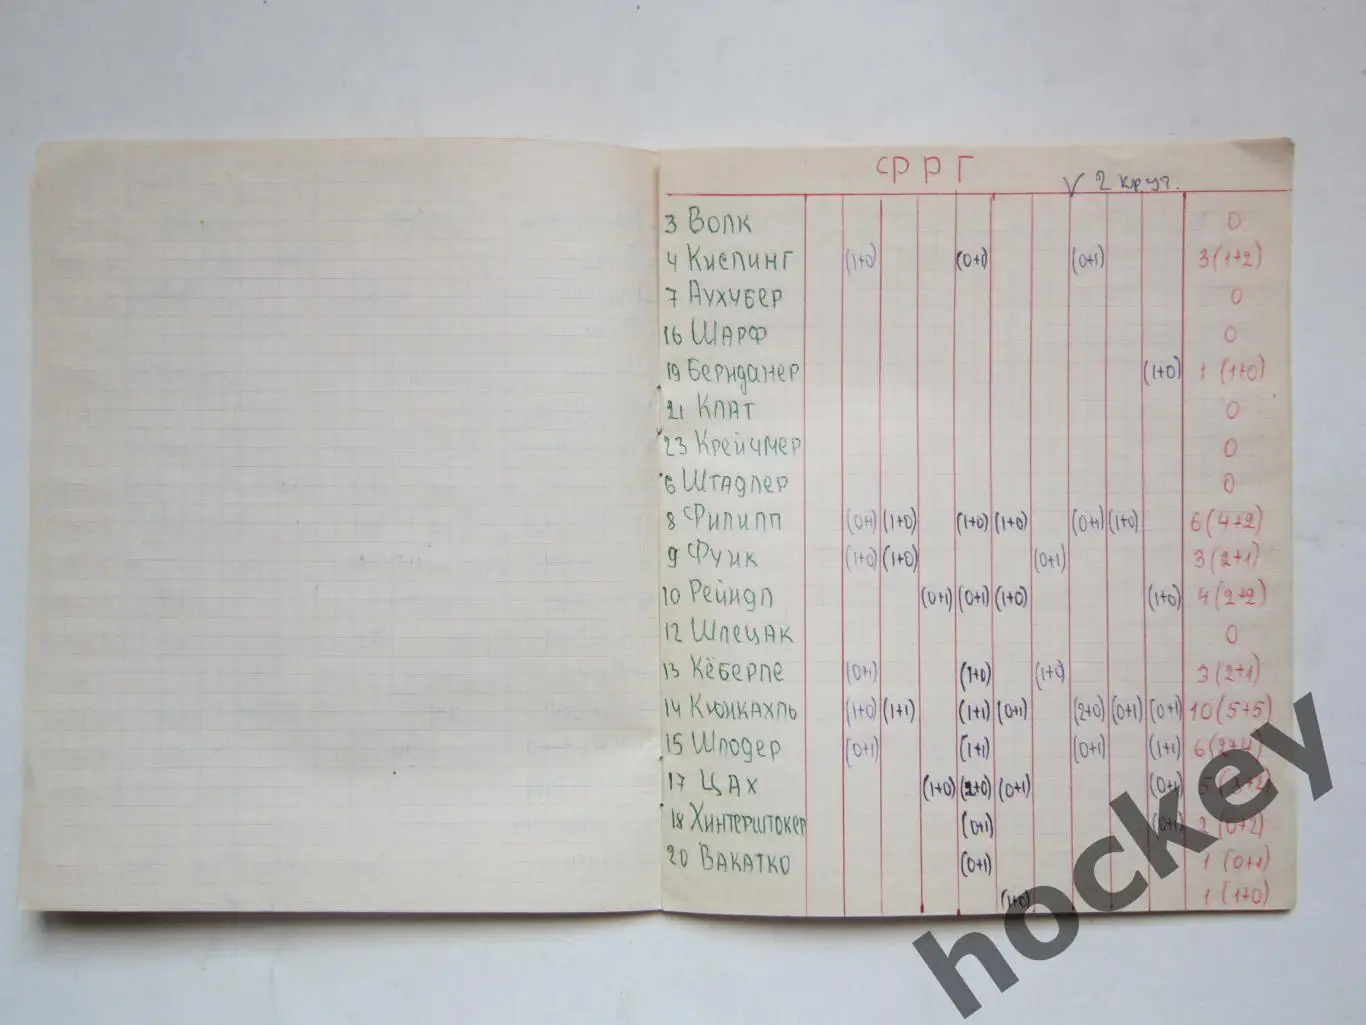 ФРГ
√ 2 круг.
3 Волк 0
4 Киспинг (1+0) (0+1) (0+1) 3(1+2)
7 Аухубер 0
16 Шарф 0
19 Бернданер (1+0) 1 (1+0)
21 Клат 0
23 Крейчмер 0
6 Штадлер 0
8 Филипп (0+1) (1+0) (1+0) (1+0) (0+1) (1+0) 6(4+2)
9 Фуик (1+0) (1+0) (0+1) 3(2+1)
10 Рейндл (0+1) (0+1) (1+0) (1+0) 4(2+2)
12 Шлецак 0
13 Кёберле (0+1) (1+0) (1+0) 3(2+1)
14 Кюнкахль (1+0) (1+1) (1+1) (0+1) (2+0) (0+1) (0+1) 10(5+5)
15 Шлодер (0+1) (1+1) (0+1) (1+1) 6(2+4)
17 Цах (1+0) (2+0) (0+1) (0+1) 5(3+2)
18 Хинтерштокер (0+1) (0+1) 2(0+2)
20 Вакатко (0+1) 1 (0+1)
(1+0) 1 (1+0)
hockey